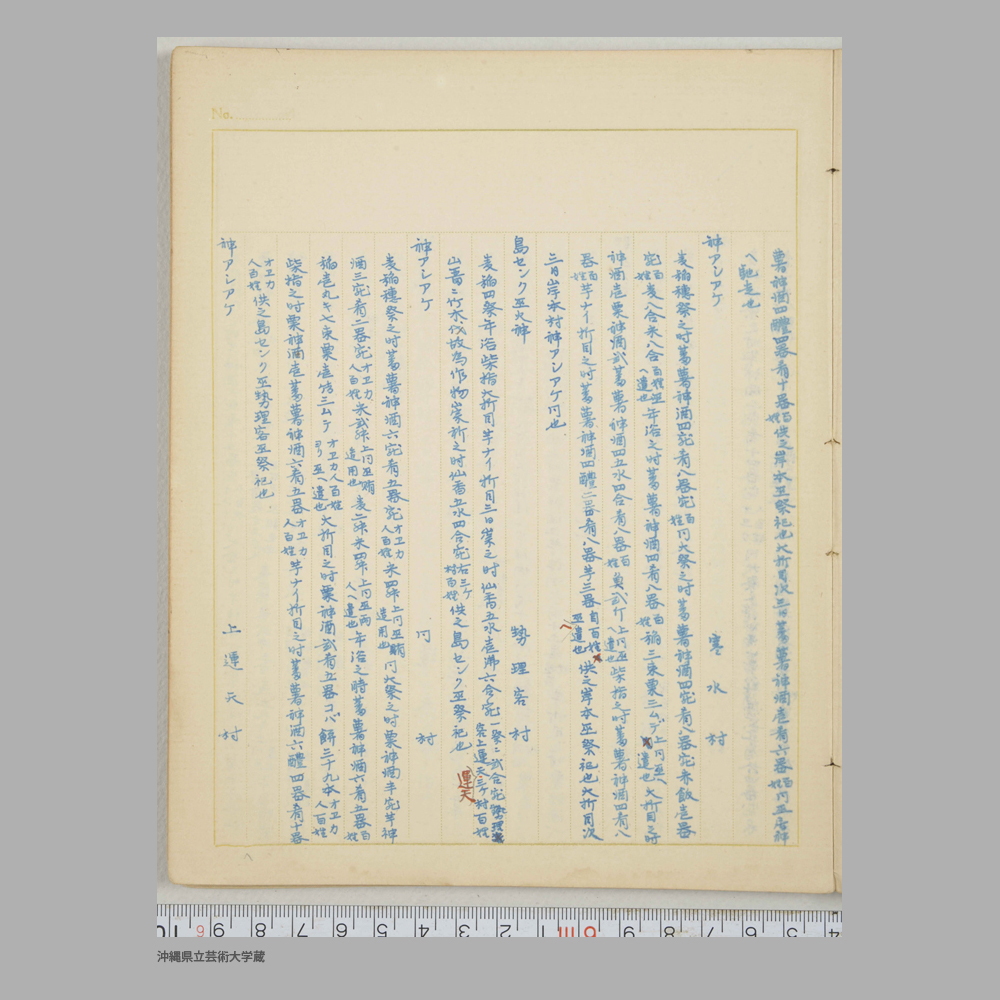 No.
蕃薯神酒四醴四器肴十器百姓供之岸本巫祭祀也大折目次三日蕃薯神酒壱肴六器百姓同巫居神
へ馳走也
神アシアケ 寒水村
麦稲穂祭之時蕃薯神酒四宛肴八器宛百姓同大祭之時蕃薯神酒四宛肴八器宛赤飯壱器
宛百姓麦八合米八合百姓巫へ遣也年浴之時蕃薯神酒四肴八器百姓稲二束粟三ムデ上同巫へ遣也大折目之時
神酒壱粟神酒弐蕃薯神酒四五水四合肴八器百姓奠弐行上同巫へ遣也柴指之時蕃薯神酒四肴八
器百姓芋ナイ折目之時蕃薯神酒四醴二器肴八器芋三器自百姓巫へ遣也供之岸本巫祭祀也大折目次
三日岸本村神アシアケ同也
島センク巫火神 勢理客村
麦稲四祭年浴柴指大折目芋ナイ折目三日崇之時仙香五水壱沸六合宛一祭ニ弐合宛勢理客上運天三ケ村百姓
山留ニ竹木伐故為作物崇祈之時仙香五水四合宛右三ケ村百姓供之島センク巫祭祀也
運天
神アシアケ 同村
麦稲穂祭之時蕃薯神酒六宛肴五器宛オエカ人百姓米四舛上同巫賄遣用也同大祭之時粟神酒半宛芋神
酒三宛肴二器宛オエカ人百姓米弐舛上同巫賄遣用也麦二舛米四舛上同巫両人へ遣也年浴之時蕃薯神酒六肴五器百姓
稲壱丸キ七束粟壱笠三ムケオエカ人百姓ヨリ巫へ遣也大折目之時粟神酒弐肴五器コバ餅三十九本オエカ人百姓
柴指之時粟神酒壱蕃薯神酒六肴五器オエカ人百姓芋ナイ折目之時蕃薯神酒六醴四器肴十器
オエカ人百姓供之島センク巫勢理客巫祭祀也
神アシアケ 上運天村
10 9 8 7 6 5 4 3 2 1 9 8 7 6 5 4
沖縄県立芸術大学蔵